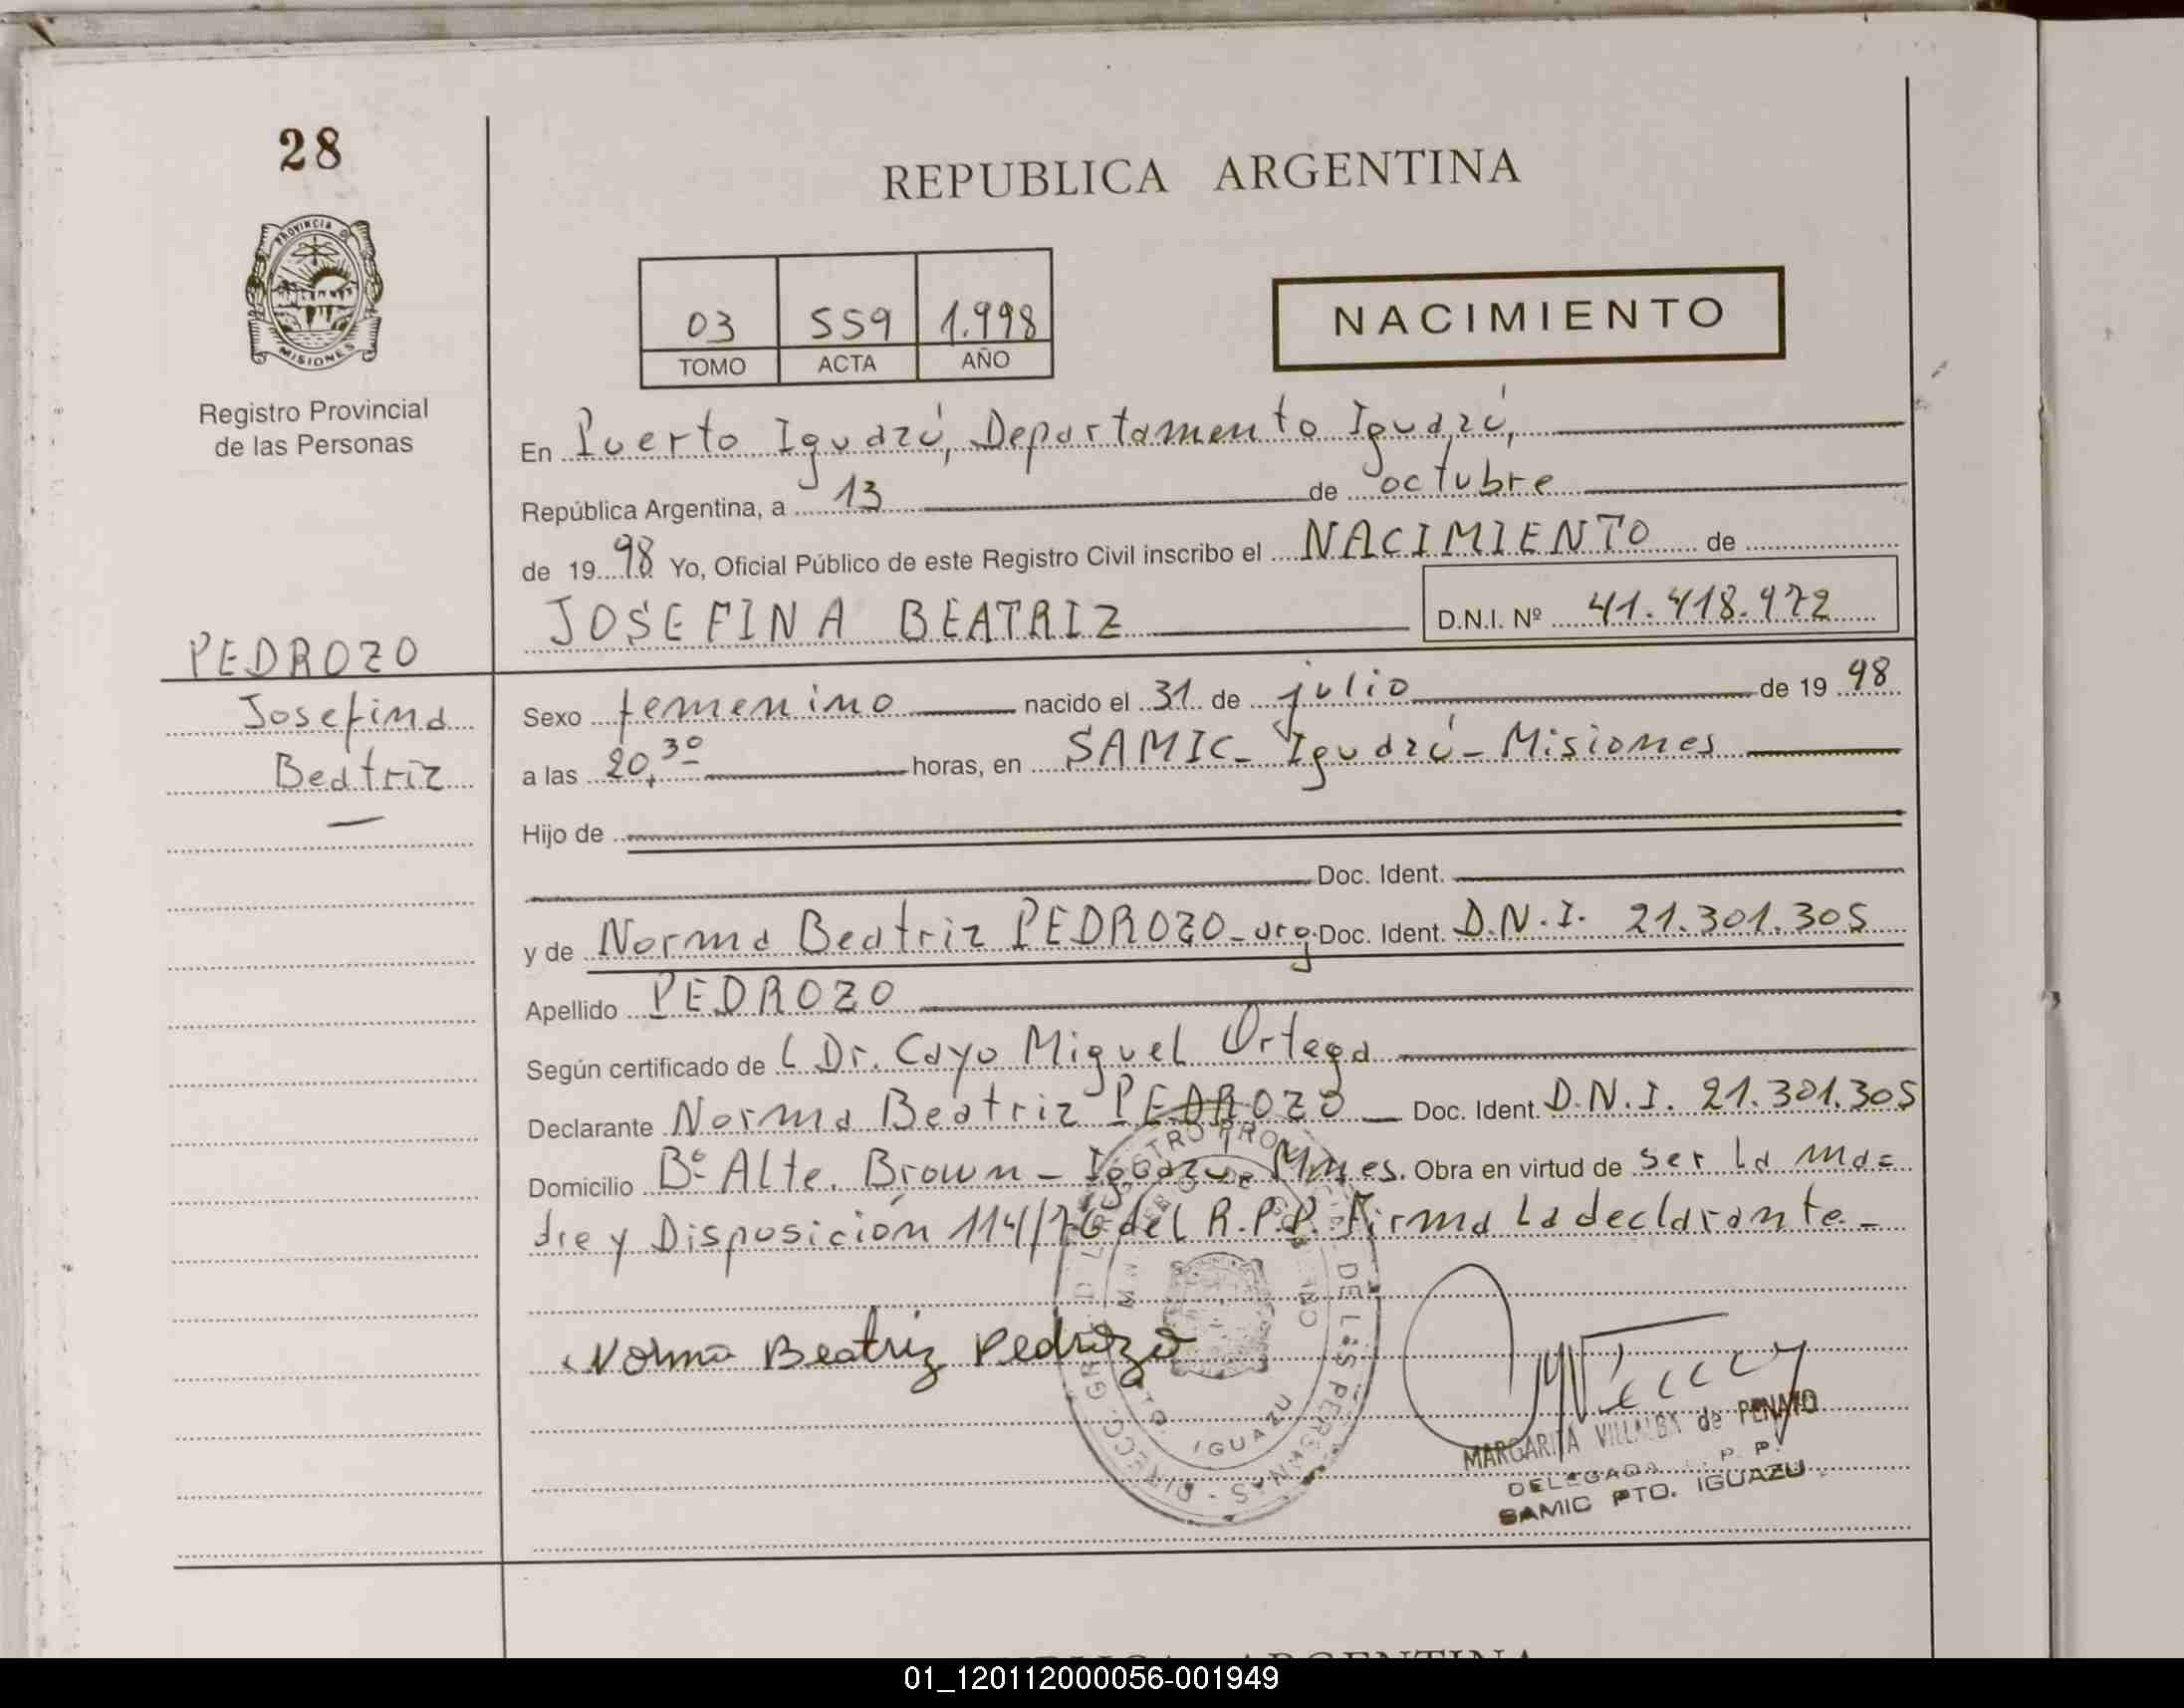 28
REPUBLICA ARGENTINA
PROVINCIA DE
MISIONES
03 559 1.998
TOMO ACTA AÑO
NACIMIENTO
Registro Provincial
de las Personas
En Puerto Iguazú, Departamento Iguazú,
República Argentina, a 13 de octubre
de 1998 Yo, Oficial Público de este Registro Civil inscribo el NACIMIENTO de
JOSEFINA BEATRIZ D.N.I. Nº 41.418.972
PEDROZO
Josefina
Beatriz
Sexo femenino nacido el 31 de julio de 1998
a las 20,30 horas, en SAMIC - Iguazú - Misiones
Hijo de
Doc. Ident.
y de Norma Beatriz PEDROZO - arg. Doc. Ident. D.N.I. 21.301.305
Apellido PEDROZO
Según certificado de L Dr. Cayo Miguel Ortega
Declarante Norma Beatriz PEDROZO Doc. Ident. D.N.I. 21.301.305
Domicilio Bº Alte. Brown - Iguazú - Mnes. Obra en virtud de ser la ma=
dre y Disposición 114/76 del R.P.P. Firma La declarante -
Norma Beatriz Pedrozo
PTO. IGUAZU
MARGARITA VILLALBA de PENAYO
DELEGADA R. P. P.
SAMIC PTO. IGUAZU
REPUBLICA ARGENTINA
01_120112000056-001949